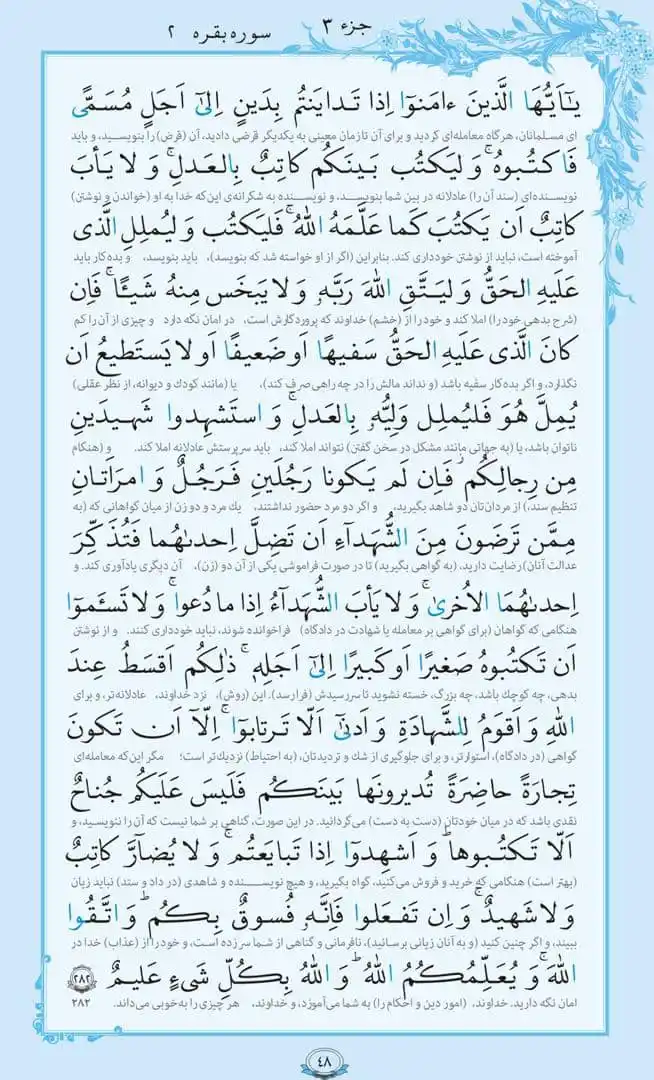 جزء ۳
سوره بقره ۲
يٰٓاَيُّهَا الَّذينَ ءامَنوٓا اِذا تَدايَنتُم بِدَينٍ اِلىٰٓ اَجَلٍ مُسَمًّى
ای مسلمانان، هرگاه معامله‌ای کردید و برای آن تا زمان معینی به یکدیگر قرضی دادید، آن (قرض) را بنویسید، و باید
فَاكتُبوهُ ۚ وَ ليَكتُب بَينَكُم كاتِبٌ بِالعَدلِ ۚ وَ لا يَأبَ
نویسنده‌ای (سند آن را) عادلانه در بین شما بنویسد، و نویسنده به شکرانه‌ی این‌که خدا به او (خواندن و نوشتن)
كاتِبٌ اَن يَكتُبَ كَما عَلَّمَهُ اللهُ ۚ فَليَكتُب وَ ليُملِلِ الَّذى
آموخته است، نباید از نوشتن خودداری کند. بنابراین (اگر از او خواسته شد که بنویسد)، باید بنویسد، و بده‌کار باید
عَلَيهِ الحَقُّ وَ ليَتَّقِ اللهَ رَبَّهٗ وَ لا يَبخَس مِنهُ شَيـًٔا ۚ فَاِن
(شرح بدهی خود را) املا کند و خود را از (خشم) خداوند که پروردگارش است، در امان نگه دارد و چیزی از آن را کم
كانَ الَّذى عَلَيهِ الحَقُّ سَفيهًا اَو ضَعيفًا اَو لا يَستَطيعُ اَن
نگذارد، و اگر بده‌کار سفیه باشد (و نداند مالش را در چه راهی صرف کند)، یا (مانند کودک و دیوانه، از نظر عقلی)
يُمِلَّ هُوَ فَليُملِل وَلِيُّهٗ بِالعَدلِ ۚ وَ استَشهِدوا شَهيدَينِ
ناتوان باشد، یا (به جهاتی مانند مشکل در سخن گفتن) نتواند املا کند، باید سرپرستش عادلانه املا کند. و (هنگام
مِن رِجالِكُم ۖ فَاِن لَم يَكونا رَجُلَينِ فَرَجُلٌ وَ امرَاَتانِ
تنظیم سند)، از مردان‌تان دو شاهد بگیرید، و اگر دو مرد حضور نداشتند، یک مرد و دو زن از میان گواهانی که (به
مِمَّن تَرضَونَ مِنَ الشُّهَدآءِ اَن تَضِلَّ اِحدىٰهُما فَتُذَكِّرَ
عدالت آنان) رضایت دارید، (به گواهی بگیرید) تا در صورت فراموشی یکی از آن دو (زن)، آن دیگری یادآوری کند. و
اِحدىٰهُمَا الاُخرىٰ ۚ وَ لا يَأبَ الشُّهَدآءُ اِذا ما دُعوا ۚ وَ لا تَسـَٔموٓا
هنگامی که گواهان (برای گواهی بر معامله یا شهادت در دادگاه) فراخوانده شوند، نباید خودداری کنند. و از نوشتن
اَن تَكتُبوهُ صَغيرًا اَو كَبيرًا اِلىٰٓ اَجَلِهٖ ۚ ذٰلِكُم اَقسَطُ عِندَ
بدهی، چه کوچک باشد، چه بزرگ، خسته نشوید تا سررسیدش (فرا رسد). این (روش)، نزد خداوند، عادلانه‌تر، و برای
اللهِ وَ اَقوَمُ لِلشَّهادَةِ وَ اَدنىٰٓ اَلّا تَرتابوٓا ۖ اِلّآ اَن تَكونَ
گواهی (در دادگاه)، استوارتر، و برای جلوگیری از شک و تردیدتان، (به احتیاط) نزدیک‌تر است؛ مگر این‌که معامله‌ای
تِجارَةً حاضِرَةً تُديرونَها بَينَكُم فَلَيسَ عَلَيكُم جُناحٌ
نقدی باشد که در میان خودتان (دست به دست) می‌گردانید. در این صورت، گناهی بر شما نیست که آن را ننویسید، و
اَلّا تَكتُبوها ۗ وَ اَشهِدوٓا اِذا تَبايَعتُم ۚ وَ لا يُضآرَّ كاتِبٌ
(بهتر است) هنگامی که خرید و فروش می‌کنید، گواه بگیرید، و هیچ نویسنده و شاهدی (در داد و ستد) نباید زیان
وَ لا شَهيدٌ ۚ وَ اِن تَفعَلوا فَاِنَّهٗ فُسوقٌ بِكُم ۗ وَ اتَّقُوا
ببیند، و اگر چنین کنید (و به آنان زیانی برسانید)، نافرمانی و گناهی از شما سر زده است، و خود را از (عذاب) خدا در
اللهَ ۖ وَ يُعَلِّمُكُمُ اللهُ ۗ وَ اللهُ بِكُلِّ شَىءٍ عَليمٌ ۲۸۲
امان نگه دارید. خداوند، (امور دین و احکام را) به شما می‌آموزد، و خداوند، هر چیزی را به‌خوبی می‌داند. ۲۸۲
۴۸